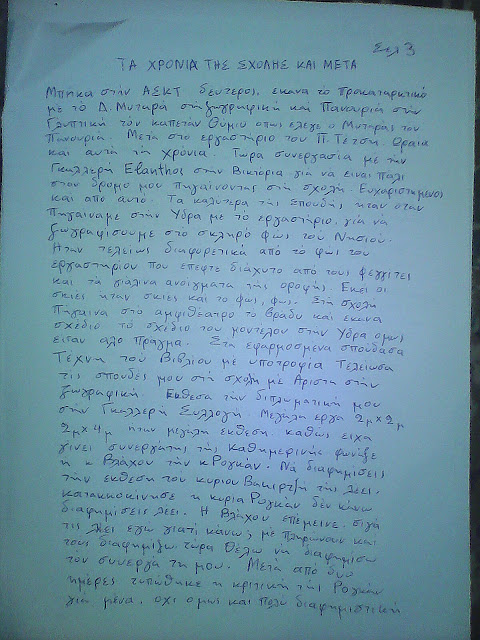 Σελ 3
ΤΑ ΧΡΟΝΙΑ ΤΗΣ ΣΧΟΛΗΣ ΚΑΙ ΜΕΤΑ
Μπηκα στήν ΑΣΚΤ δευτερος, εκανα το προκαταρκτικό
με το Δ. Μυταρά στη ζωγραφική καί Πανουριά στην
Γλυπτική τον καπετάν Θύμιο οπως ελεγε ο Μυταράς τον
Πανουριά. Μετά στο εργαστήριο του Π. Τετση. Ωραια
και αυτά τά χρόνια. Τωρα συνεργασία με τήν
Γκαλλερή Elanthos στην Βικτορια για να ειναι πάλι
στον δρομο μου πηγαίνοντας στή σχολή. Ευχαριστημενος
και από αυτό. Τα καλυτερα της σπουδής ηταν οταν
πηγαιναμε στήν Υδρα με το εργαστήριο, γιά νά
ζωγραφίσουμε στο σκληρό φως τού Νησιού.
Ηταν τελείως διαφορετικά από το φως του
εργαστηρίου που επεφτε διάχυτο από τους φεγγίτες
και τα γυάλινα ανοιγματα τής οροφής. Εκεί οι
σκιες ηταν σκιες και το φως, φως. Στη σχολή
πηγαινα στο αμφιθέατρο το βράδυ και εκανα
σχέδιο τό σχέδιο του μοντελου στην Υδρα ομως
ειταν αλο πραγμα. Στα εφαρμοσμένα σπουδασα
Τέχνη τού Βιβλίου με υποτροφία Τελειωσα
τις σπουδες μου στη σχολή με Αριστα στήν
ζωγραφική. Εκθεσα τήν διπλωματική μου
στήν Γκαλλερή Συλλογή. Μεγαλα εργα 2μ×2μ
2μ×4μ ηταν μεγαλη εκθεση. καθώς ειχα
γινει συνεργάτης τής καθημερινής φωνάξε
η κ Βλάχου τήν κ Ρογκάν. Νά διαφημίσεις
τήν εκθεση του κυριου Βακιρτζή τής λεει,
κατακοκκινισε η κυρία Ρογκάν δέν κάνω
διαφημίσεις λεει. Η Βλάχου επέμεινε. σιγά
τις λεει εγω γιατί κάνω; με πληρώνουν και
τους διαφημίζω, τώρα θέλω νά διαφημίσω
τόν συνεργάτη μου. Μετά από δυο
ημέρες τυπώθηκε η κριτική της Ρογκάν
γιά μένα, οχι ομως και πολύ διαφημιστική